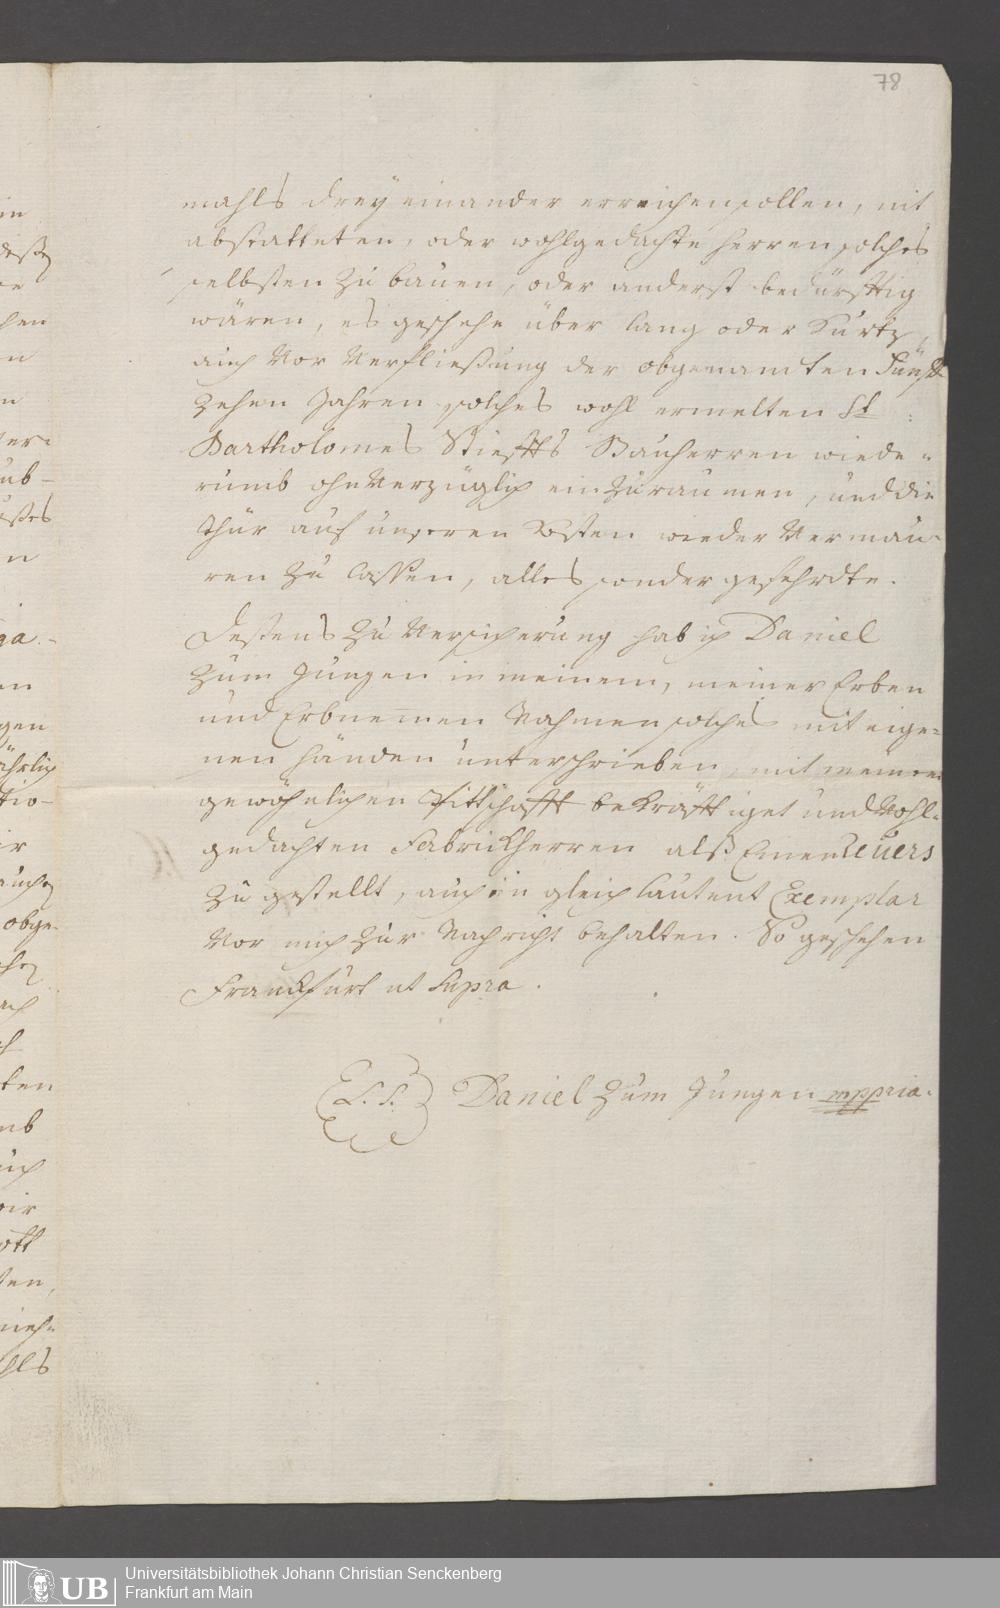 78
mahls drey einander erreichen sollen, nit
abstatteten, oder wohlgedachte Herren solches
selbsten zu bauen, oder anderst bedürfftig
wären, es geschehe über lang oder kurtz,
auch vor Verfließung der obgenandten Fünff
zehen Jahren solches wohl ermelten St:
Bartholomes Stieffts Bauherren wiede„
rumb ohnverzüglich einzuraumen, und die
thür auf unseren Kosten wieder vermau„
ren zu lassen, alles sonder gefehrdte.
Deßens zu Versicherung hab ich Daniel
zum Jungen in meinem, meiner Erben
und Erbnemen Nahmen solches mit eige„
nen händen unterschrieben, mit meinem
gewöhnlichen Pittschafft bekräfftiget und Wohl„
gedachten Fabrickherren alß Einen Revers
zu gestellt, auch ein gleich lautent Exemplar
vor mich zur Nachricht behalten. So geschehen
Franckfurt ut Supra.
L. S. Daniel zum Jungen mppria.
UB
Universitätsbibliothek Johann Christian Senckenberg
Frankfurt am Main